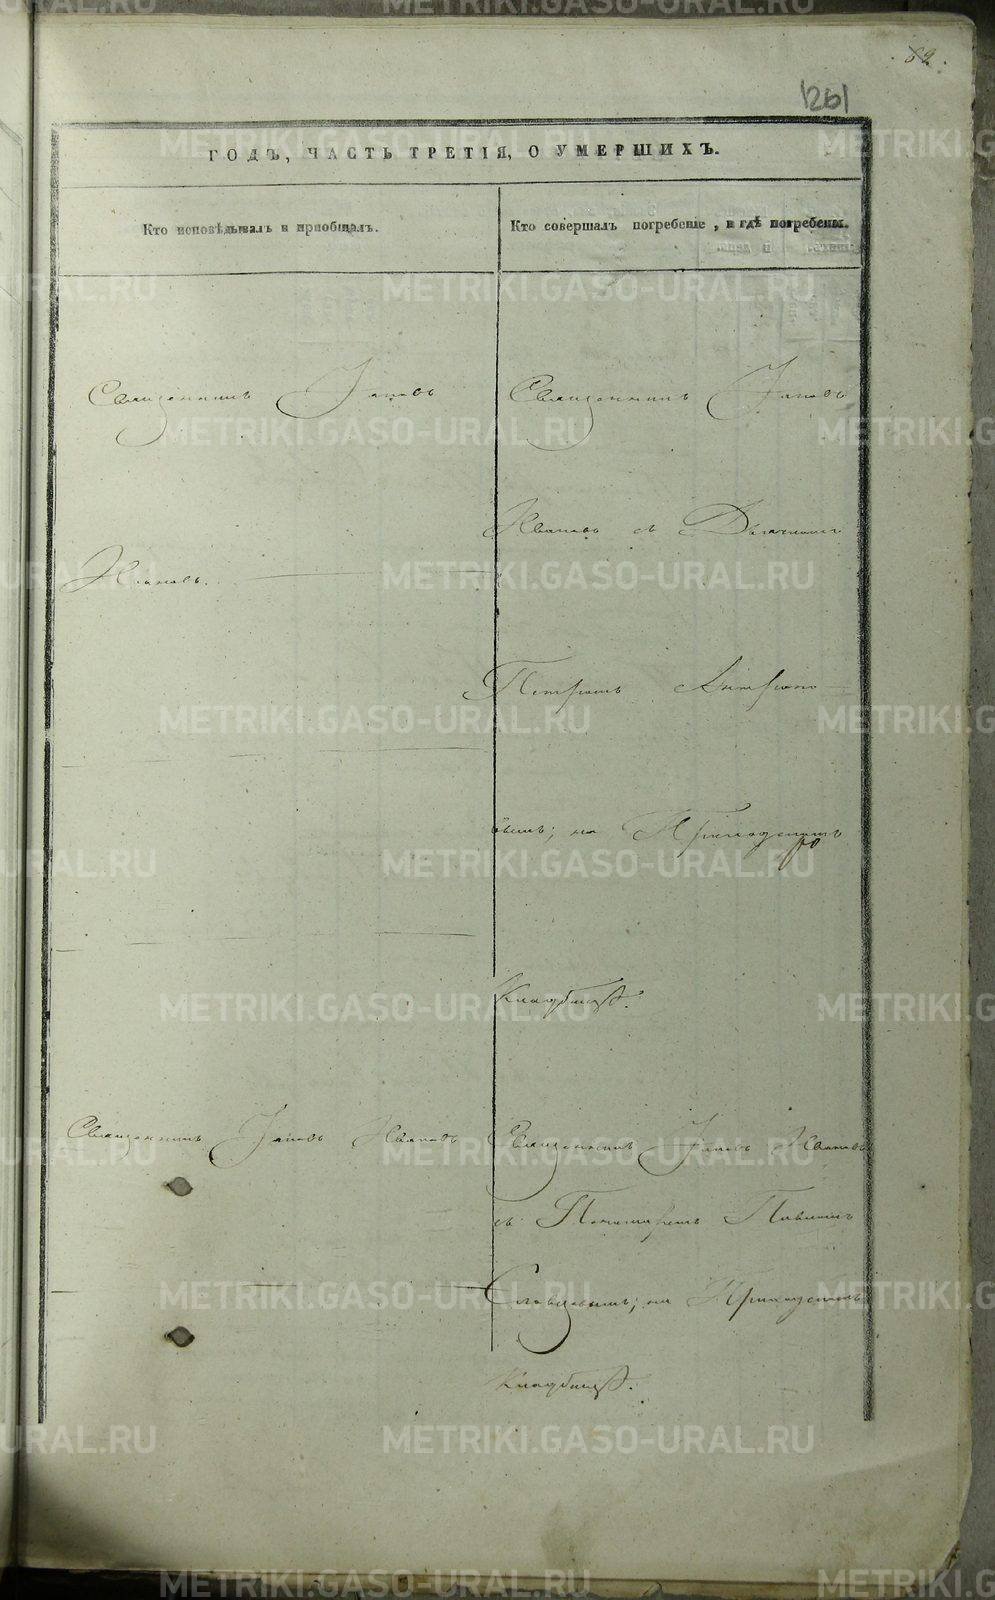 82.
1261
ГОДЪ, ЧАСТЬ ТРЕТІЯ, О УМЕРШИХЪ.
Кто исповѣдывалъ и пріобщалъ.
Кто совершалъ погребеніе, и гдѣ погребены.
Священникъ Іаковъ
Ивановъ.
Священникъ Іаковъ
Ивановъ съ Дьячкомъ
Петромъ Антропо-
вымъ; на Приходскомъ
Кладбищѣ.
Священникъ Іаковъ Ивановъ
Священникъ Іаковъ Ивановъ
съ Пономаремъ Павломъ
Словцовымъ; на Приходскомъ
Кладбищѣ.
METRIKI.GASO-URAL.RU